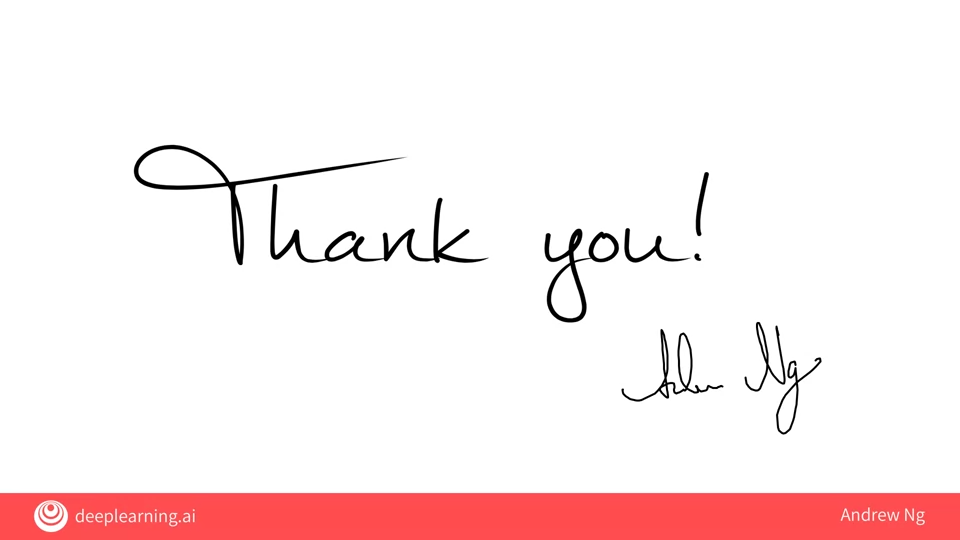 Thank you!
Andrew Ng
deeplearning.ai
Andrew Ng